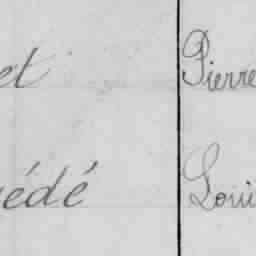 et Pierre
édé Loui